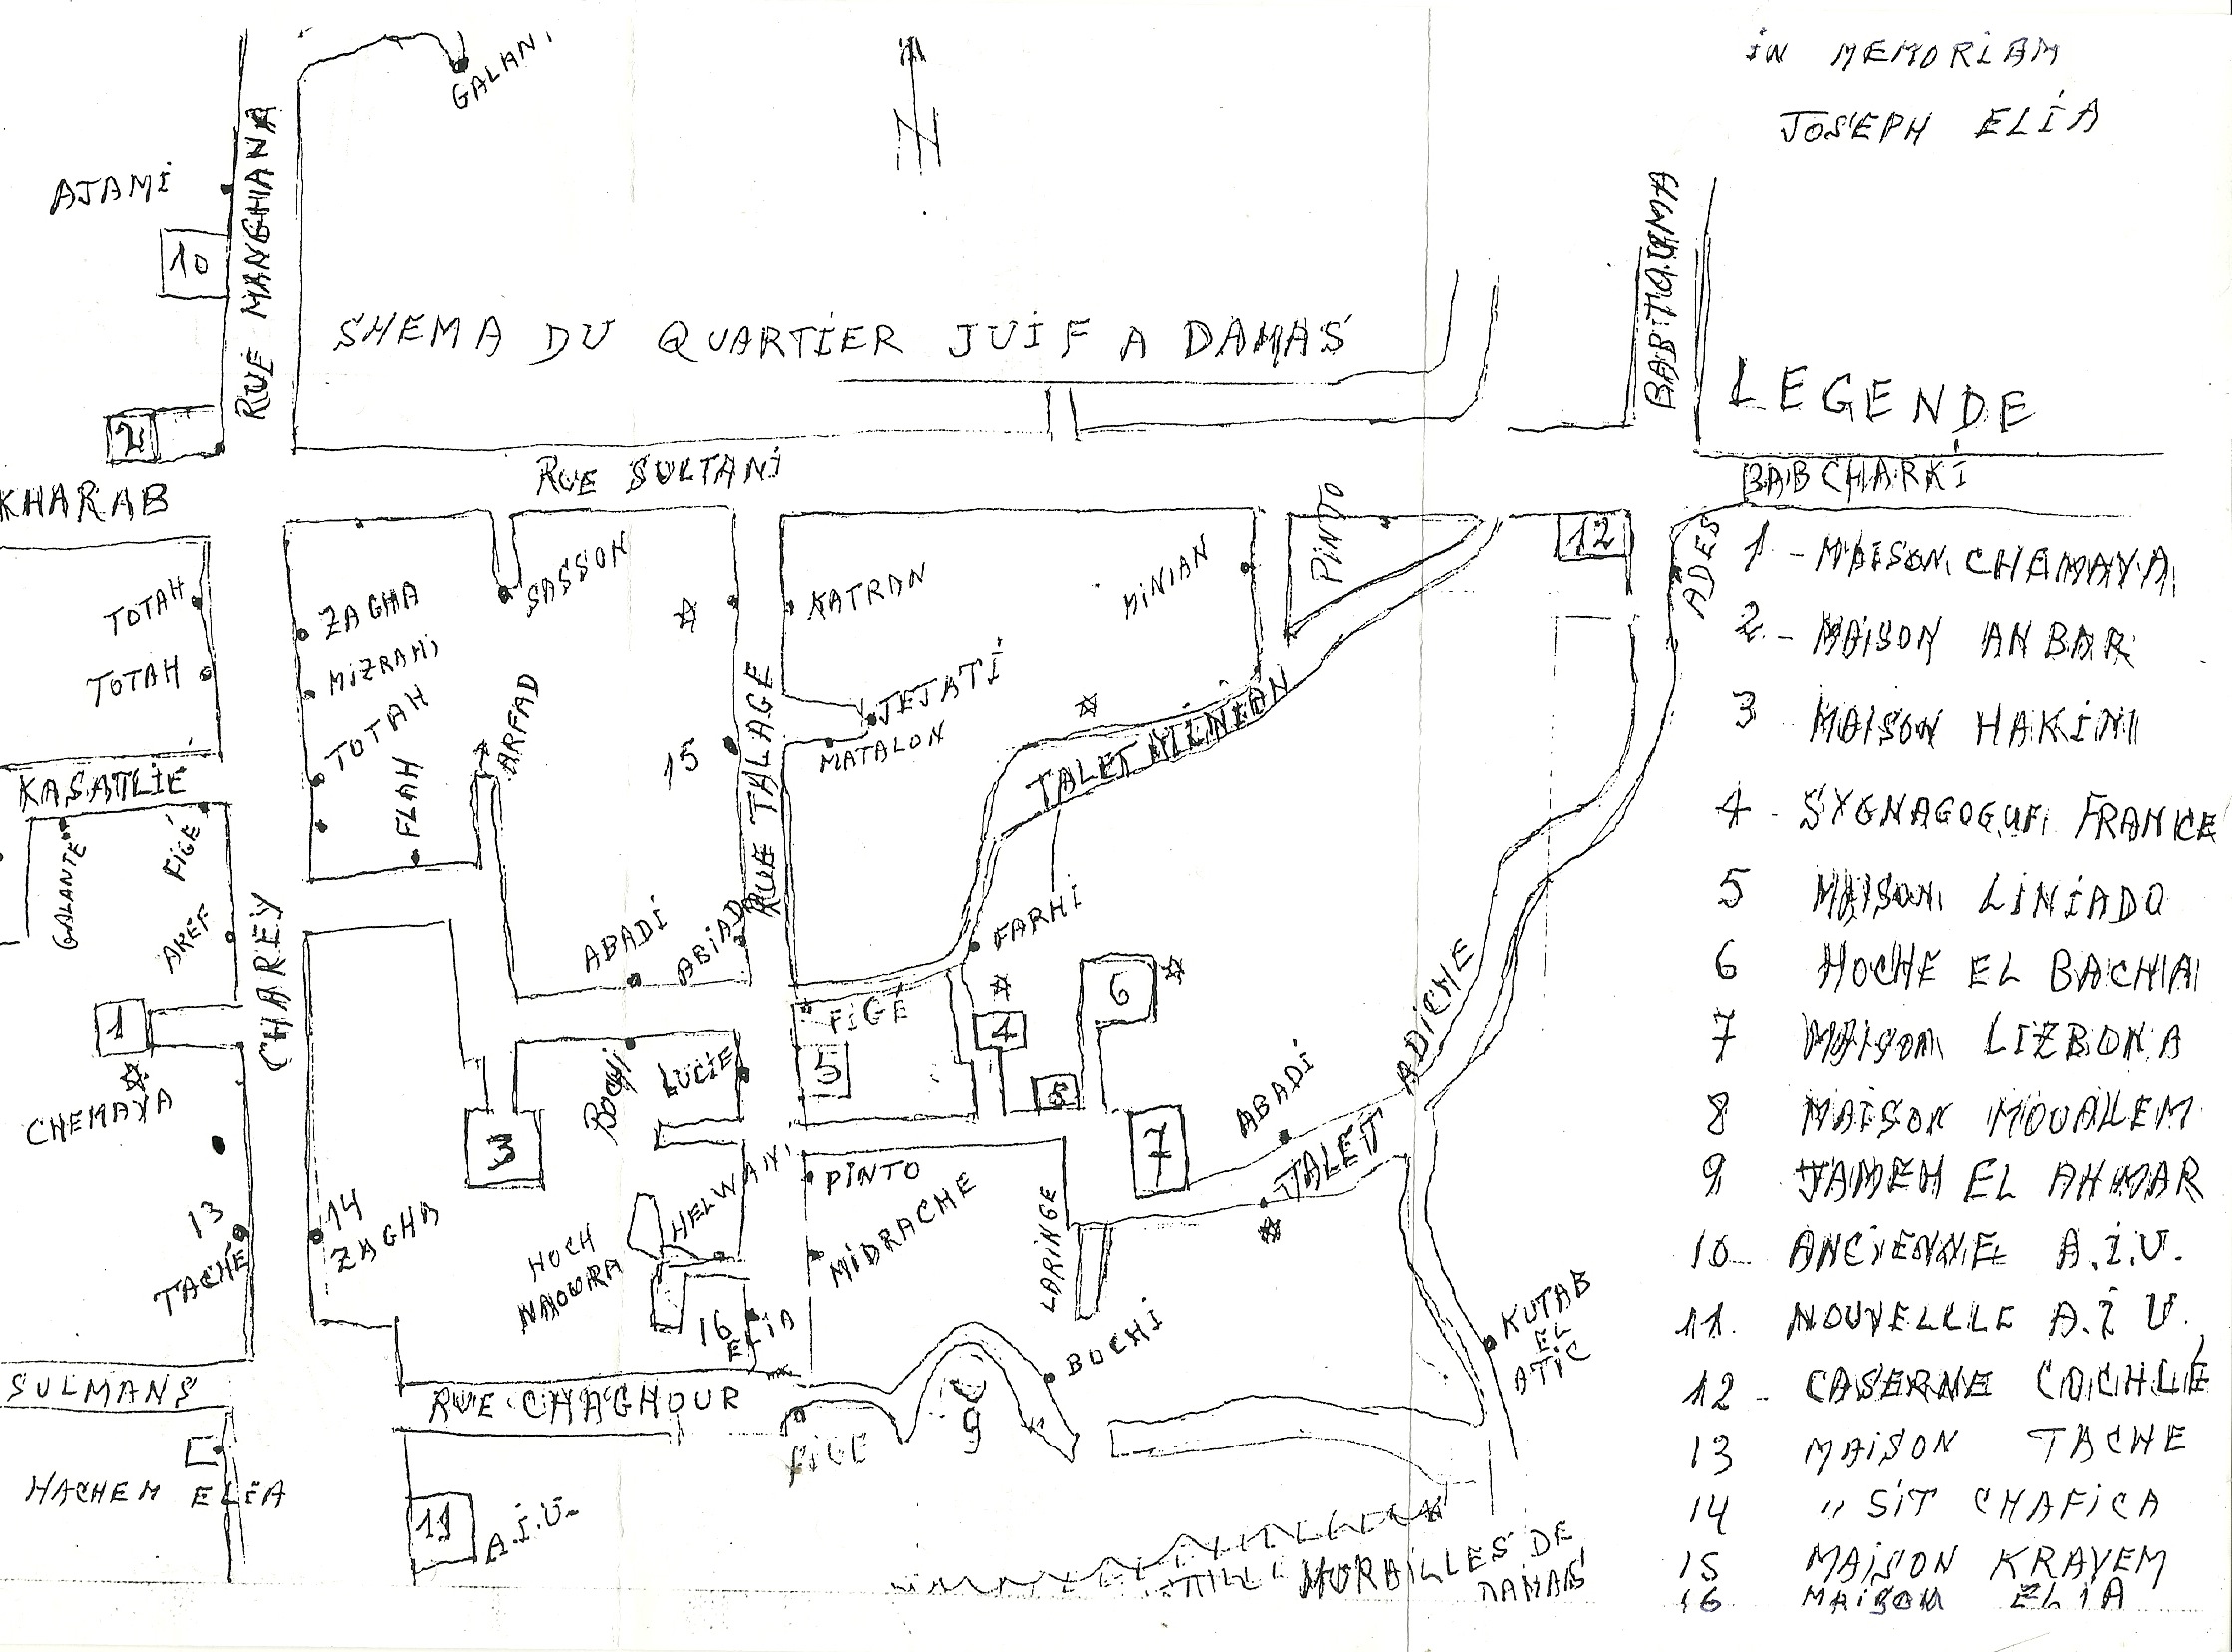 IN MEMORIAM
JOSEPH ELIA
GALANI
N
AJAMI
10
RUE MANGHANA
SHEMA DU QUARTIER JUIF A DAMAS
BABTOUMA
LEGENDE
2
RUE SULTANI
BABCHARKI
KHARAB
PINTO
12
ADES
TOTAH
TOTAH
ZAGHA
MIZRAHI
TOTAH
FLAH
SASSON
ARFAD
KATRAN
MINIAN
JEJATI
MATALON
15
RUE TALAGE
TALET
KASATLIE
GALANTE
FIGÉ
AREF
CHAREY
ABADI
ABIAD
FARHI
FIGÉ
1
CHEMAYA
BOCHI
LUCIE
5
4
6
8
3
7
ABADI
TALET ADICHE
PINTO
HELWANI
MIDRACHE
LARINGE
13
TACHÉ
14
ZAGHA
HOCH
NAOURA
16
ELIA
BOCHI
KUTAB
EL
ATIC
SULMANS
RUE CHAGHOUR
FIGE
9
HACHEM ELIA
11
A.I.U.
MURAILLES DE
DAMAS
1 - MAISON CHEMAYA
2 - MAISON ANBAR
3 MAISON HAKIM
4 - SYGNAGOGUE FRANKE
5 MAISON LINIADO
6 HOCHE EL BACHA
7 MAISON LIZBONA
8 MAISON MOUALLEM
9 JAMEH EL AHMAR
10 ANCIENNE A.I.U.
11. NOUVELLLE A.I.U,
12 - CASERNE COCHLÉ
13 MAISON TACHE
14 " SIT CHAFICA
15 MAISON KRAYEM
16 MAISON ELIA